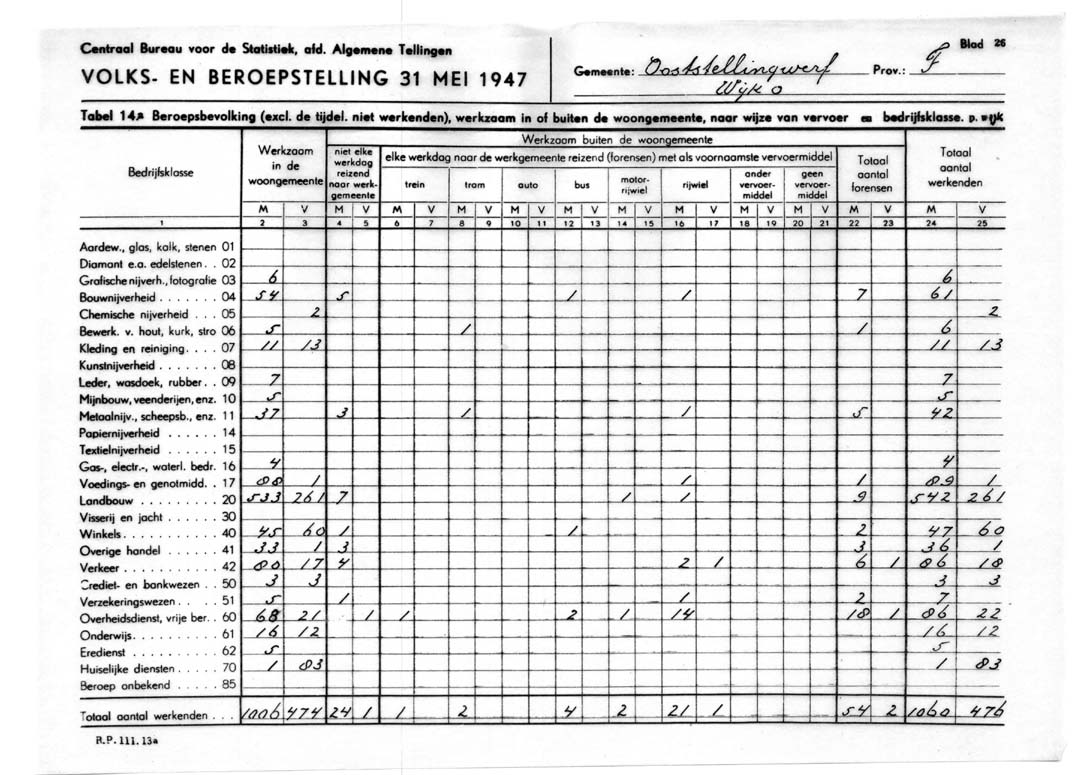 Centraal Bureau voor de Statistiek, afd. Algemene Tellingen
VOLKS- EN BEROEPSTELLING 31 MEI 1947
Gemeente: Ooststellingwerf Prov.: F Blad 26
Wijk O
Tabel 14.a Beroepsbevolking (excl. de tijdel. niet werkenden), werkzaam in of buiten de woongemeente, naar wijze van vervoer en bedrijfsklasse. p. wijk
Bedrijfsklasse
Werkzaam in de woongemeente
Werkzaam buiten de woongemeente
niet elke werkdag reizend naar werkgemeente
elke werkdag naar de werkgemeente reizend (forensen) met als voornaamste vervoermiddel
trein tram auto bus motor-rijwiel rijwiel ander vervoer-middel geen vervoer-middel
Totaal aantal forensen
Totaal aantal werkenden
M V M V M V M V M V M V M V M V M V M V M V M V
1 2 3 4 5 6 7 8 9 10 11 12 13 14 15 16 17 18 19 20 21 22 23 24 25
Aardew., glas, kalk, stenen 01
Diamant e.a. edelstenen . . 02
Grafische nijverh., fotografie 03 6 6
Bouwnijverheid . . . . . . . 04 54 5 1 1 7 61
Chemische nijverheid . . . 05 2 2
Bewerk. v. hout, kurk, stro 06 5 1 1 6
Kleding en reiniging. . . . 07 11 13 11 13
Kunstnijverheid . . . . . . 08
Leder, wasdoek, rubber. . 09 7 7
Mijnbouw, veenderijen, enz. 10 5 5
Metaalnijv., scheepsb., enz. 11 37 3 1 1 5 42
Papiernijverheid . . . . . . 14
Textielnijverheid . . . . . . 15
Gas-, electr.-, waterl. bedr. 16 4 4
Voedings- en genotmidd. . 17 88 1 1 1 89 1
Landbouw . . . . . . . . . 20 533 261 7 1 1 9 542 261
Visserij en jacht . . . . . . 30
Winkels . . . . . . . . . . . 40 45 60 1 1 2 47 60
Overige handel . . . . . . 41 33 1 3 3 36 1
Verkeer . . . . . . . . . . . 42 80 17 4 2 1 6 1 86 18
Crediet- en bankwezen . . 50 3 3 3 3
Verzekeringswezen . . . . 51 5 1 1 2 7
Overheidsdienst, vrije ber. . 60 68 21 1 1 2 1 14 18 1 86 22
Onderwijs. . . . . . . . . . 61 16 12 16 12
Eredienst . . . . . . . . . . 62 5 5
Huiselijke diensten . . . . . 70 1 83 1 83
Beroep onbekend . . . . . 85
Totaal aantal werkenden . . . 1006 474 24 1 1 2 4 2 21 1 54 2 1060 476
R.P. 111. 13a